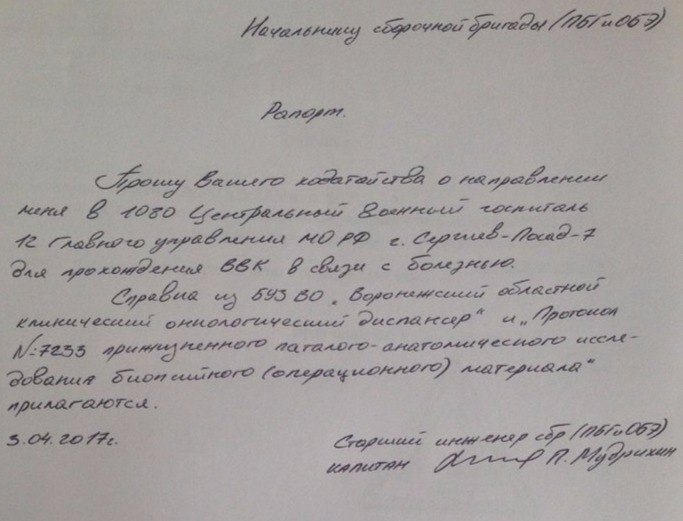 Начальнику сборочной бригады (ПБГиОБЭ)
Рапорт.
Прошу Вашего ходатайства о направлении
меня в 1080 Центральный Военный госпиталь
12 Главного управления МО РФ г. Сергиев-Посад-7
для прохождения ВВК в связи с болезнью.
Справка из БУЗ ВО „Воронежский областной
клинический онкологический диспансер“ и „Протокол
№7233 прижизненного паталого-анатомического иссле-
дования биопсийного (операционного) материала“
прилагаются.
3.04.2017г.
Старший инженер сбр (ПБГиОБЭ)
капитан П. Мудрихин